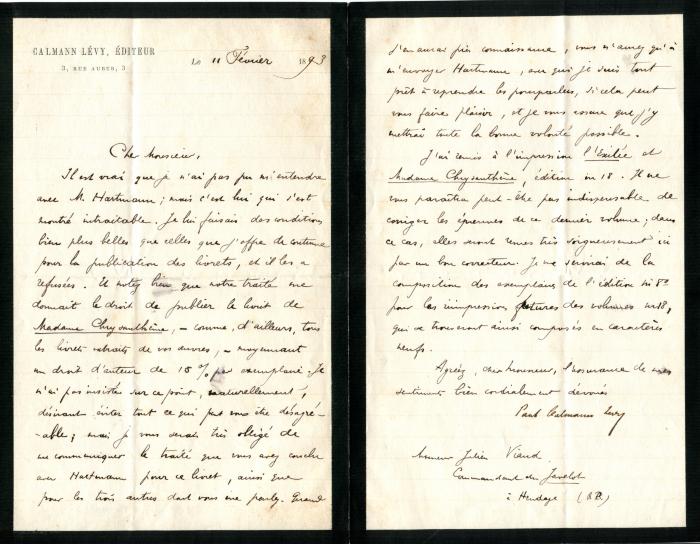 CALMANN LÉVY, ÉDITEUR
3, RUE AUBER, 3
Le 11 Février 1893
Cher Monsieur,
Il est vrai que je n'ai pas pu m'entendre
avec M. Hartmann ; mais c'est lui qui s'est
montré intraitable. Je lui faisais des conditions
bien plus belles que celles que j'offre de coutume
pour la publication des livrets, et il les a
refusées. Et notez bien que notre traité me
donnait le droit de publier le livret de
Madame Chrysanthème, – comme, d'ailleurs, tous
les livrets extraits de vos œuvres, – moyennant
un droit d'auteur de 15 % par exemplaire. Je
n'ai pas insisté sur ce point, naturellement,
désirant éviter tout ce qui peut vous être désagré-
-able ; mais je vous serais très obligé de
me communiquer le traité que vous avez conclu
avec Hartmann pour ce livret, ainsi que
pour les trois autres dont vous me parlez. Quand
j'en aurai pris connaissance, vous n'aurez qu'à
m'envoyer Hartmann, avec qui je suis tout
prêt à reprendre les pourparlers, si cela peut
vous faire plaisir, et je vous assure que j'y
mettrai toute la bonne volonté possible.
J'ai remis à l'impression l'Exilée et
Madame Chrysanthème, édition in 18. Il ne
vous paraîtra peut-être pas indispensable de
corriger les épreuves de ce dernier volume ; dans
ce cas, elles seront revues très soigneusement ici
par un bon correcteur. Je me servirai de la
composition des exemplaires de l'édition in 8°
pour les réimpressions futures des volumes in 18,
qui se trouveront ainsi composés en caractères
neufs.
Agréez, cher Monsieur, l'assurance de mes
sentiments bien cordialement dévoués
Paul Calmann Lévy
Monsieur Julien Viaud
Commandant du Javelot
à Hendaye (B.P.)